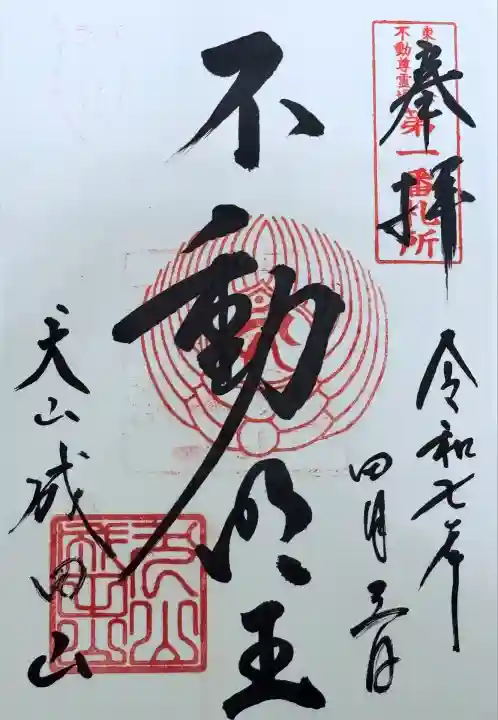 奉拝
不動尊霊
第一番札所
令和七年
四月三日
不動明王
犬山成田山